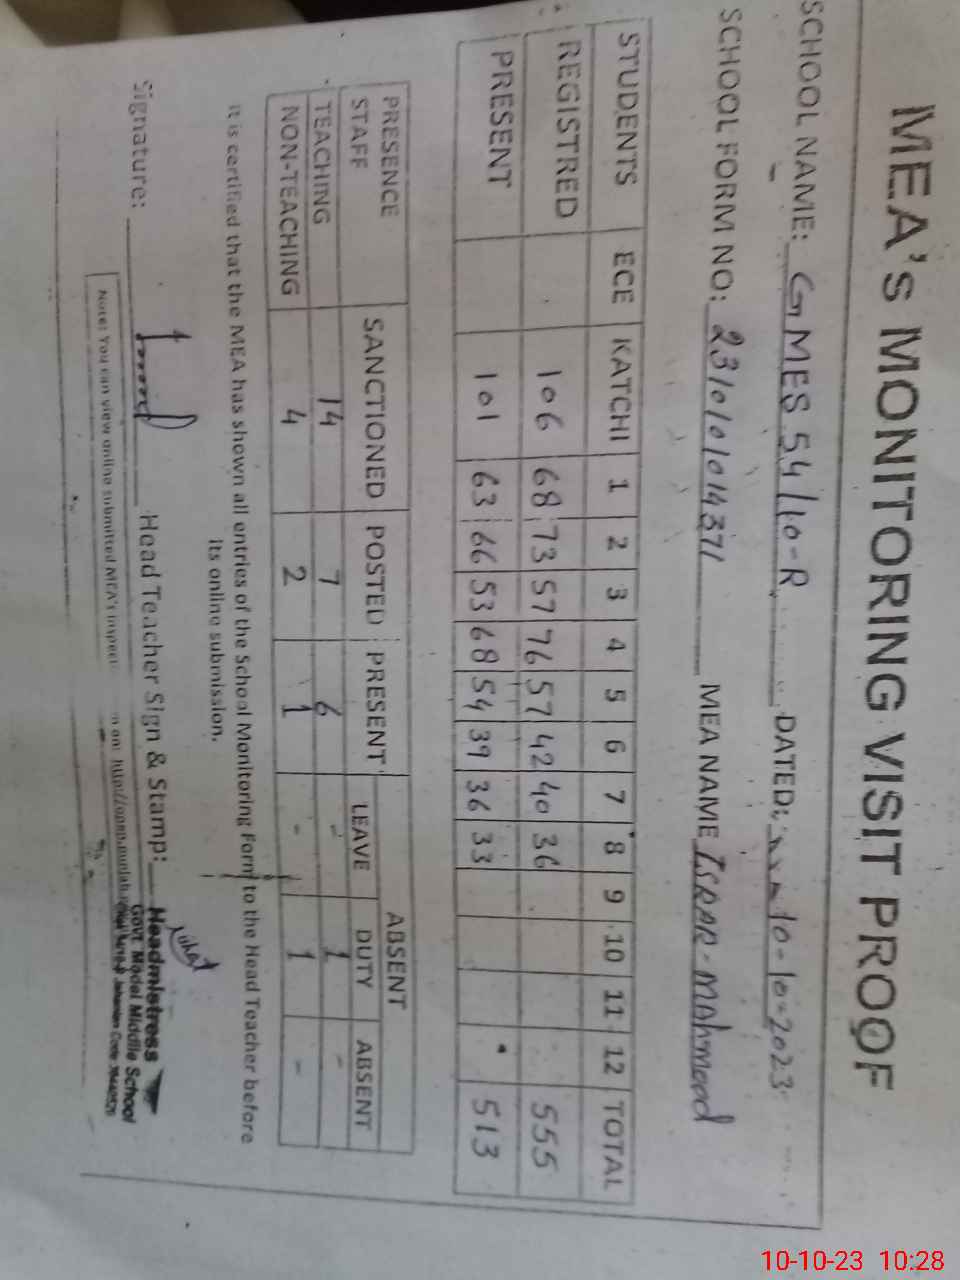 MEA's MONITORING VISIT PROOF
SCHOOL NAME: GMES 54/10-R DATED: 10-10-2023
SCHOOL FORM NO: MEA NAME ISRAR-MAHMOOD
STUDENTS ECE KATCHI 1 2 3 4 5 6 7 8 9 10 11 12 TOTAL
REGISTRED 106 68 73 57 76 57 42 40 36 555
PRESENT 101 63 66 53 68 54 39 36 33 513
PRESENCE STAFF SANCTIONED POSTED PRESENT ABSENT
LEAVE DUTY ABSENT
TEACHING 14 7 6 - 1 -
NON-TEACHING 4 2 1 - 1 -
It is certified that the MEA has shown all entries of the School Monitoring Form to the Head Teacher before
its online submission.
Signature: Head Teacher Sign & Stamp:
Headmistress
Govt. Model Middle School
Jahanian Code
Note: You can view online submitted MEA's